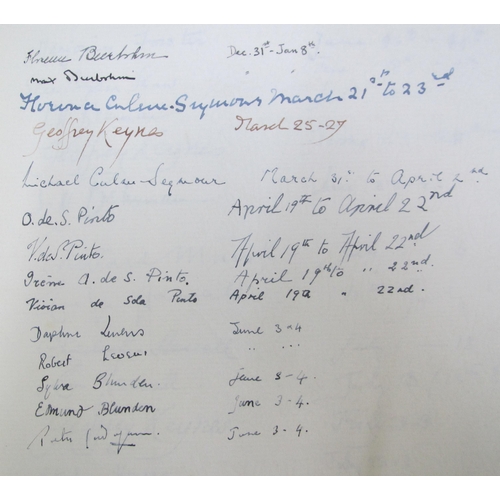 Florence Beerbohm Dec. 31st - Jan 8th.
Max Beerbohm
Culme-Seymour March 21st to 23rd
Geoffrey Keynes March 25-27
Michael Culme-Seymour March 31st to April 2nd
O. de S. Pinto April 19th to April 22nd
V. de S. Pinto. April 19th to April 22nd
Irène A. de S. Pinto. April 19th to " 22nd.
Vivian de Sola Pinto April 19th " 22nd.
Daphne Levens June 3-4
Robert Levens " "
Sylva Blunden. June 3-4.
Edmund Blunden June 3-4.
Peter June 3-4.